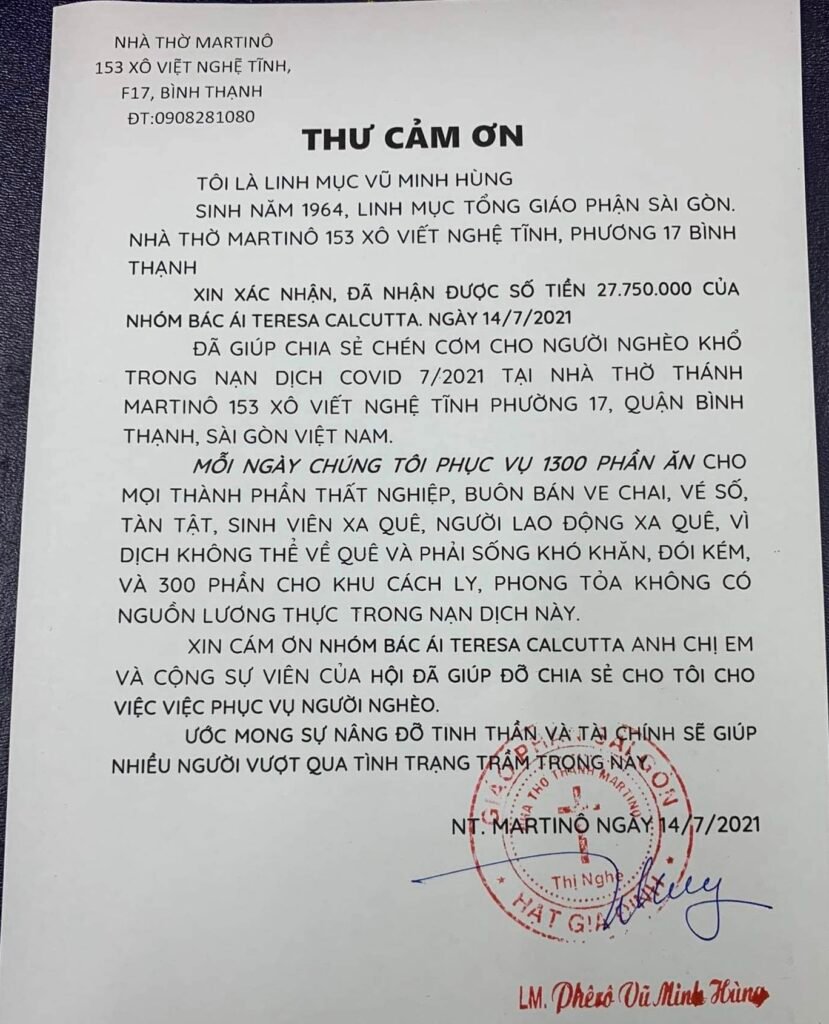 NHÀ THỜ MARTINÔ
153 XÔ VIỆT NGHỆ TĨNH,
F17, BÌNH THẠNH
ĐT:0908281080
THƯ CẢM ƠN
TÔI LÀ LINH MỤC VŨ MINH HÙNG
SINH NĂM 1964, LINH MỤC TỔNG GIÁO PHẬN SÀI GÒN.
NHÀ THỜ MARTINÔ 153 XÔ VIẾT NGHỆ TĨNH, PHƯƠNG 17 BÌNH
THẠNH
XIN XÁC NHẬN, ĐÃ NHẬN ĐƯỢC SỐ TIỀN 27.750.000 CỦA
NHÓM BÁC ÁI TERESA CALCUTTA. NGÀY 14/7/2021
ĐÃ GIÚP CHIA SẺ CHÉN CƠM CHO NGƯỜI NGHÈO KHỔ
TRONG NẠN DỊCH COVID 7/2021 TẠI NHÀ THỜ THÁNH
MARTINÔ 153 XÔ VIẾT NGHỆ TĨNH PHƯỜNG 17, QUẬN BÌNH
THẠNH, SÀI GÒN VIỆT NAM.
MỖI NGÀY CHÚNG TÔI PHỤC VỤ 1300 PHẦN ĂN CHO
MỌI THÀNH PHẦN THẤT NGHIỆP, BUÔN BÁN VE CHAI, VÉ SỐ,
TÀN TẬT, SINH VIÊN XA QUÊ, NGƯỜI LAO ĐỘNG XA QUÊ, VÌ
DỊCH KHÔNG THỂ VỀ QUÊ VÀ PHẢI SỐNG KHÓ KHĂN, ĐÓI KÉM,
VÀ 300 PHẦN CHO KHU CÁCH LY, PHONG TỎA KHÔNG CÓ
NGUỒN LƯƠNG THỰC TRONG NẠN DỊCH NÀY.
XIN CÁM ƠN NHÓM BÁC ÁI TERESA CALCUTTA ANH CHỊ EM
VÀ CỘNG SỰ VIÊN CỦA HỘI ĐÃ GIÚP ĐỠ CHIA SẺ CHO TÔI CHO
VIỆC VIỆC PHỤC VỤ NGƯỜI NGHÈO.
ƯỚC MONG SỰ NÂNG ĐỠ TINH THẦN VÀ TÀI CHÍNH SẼ GIÚP
NHIỀU NGƯỜI VƯỢT QUA TÌNH TRẠNG TRẦM TRỌNG NÀY
GIÁO PHẬN SÀI GÒN
NHÀ THỜ THÁNH MARTINO
NT. MARTINÔ NGÀY 14/7/2021
Thị Nghè
HẠT GIA ĐỊNH
LM. Phêrô Vũ Minh Hùng